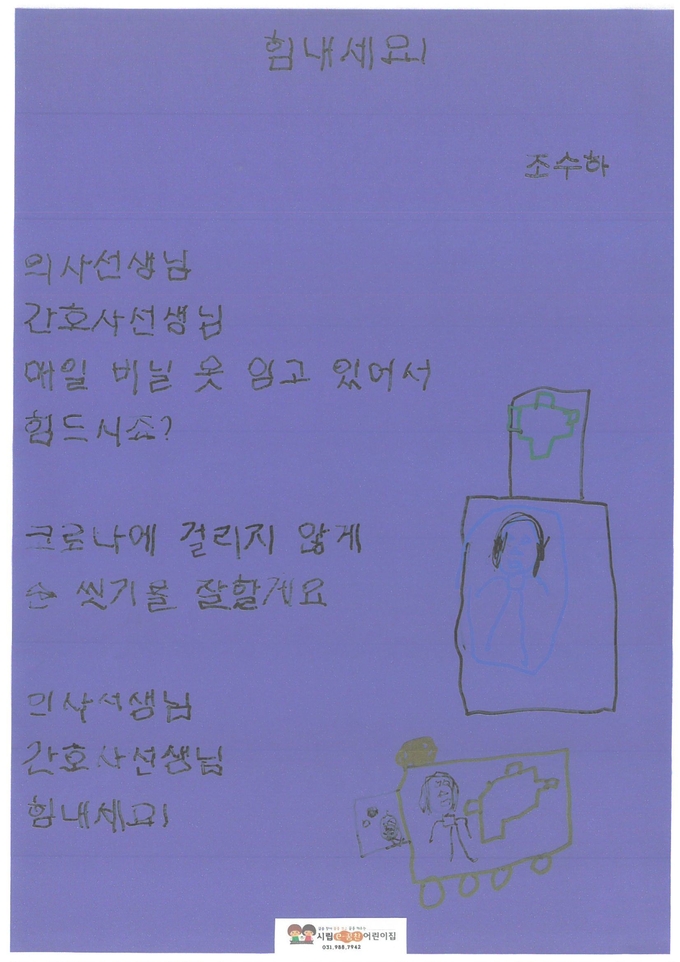 힘내세요!
조수하
의사선생님
간호사선생님
매일 비닐 옷 입고 있어서
힘드시죠?
코로나에 걸리지 않게
손 씻기를 잘할게요
의사선생님
간호사선생님
힘내세요!
시립 어린이집
031.988.7942